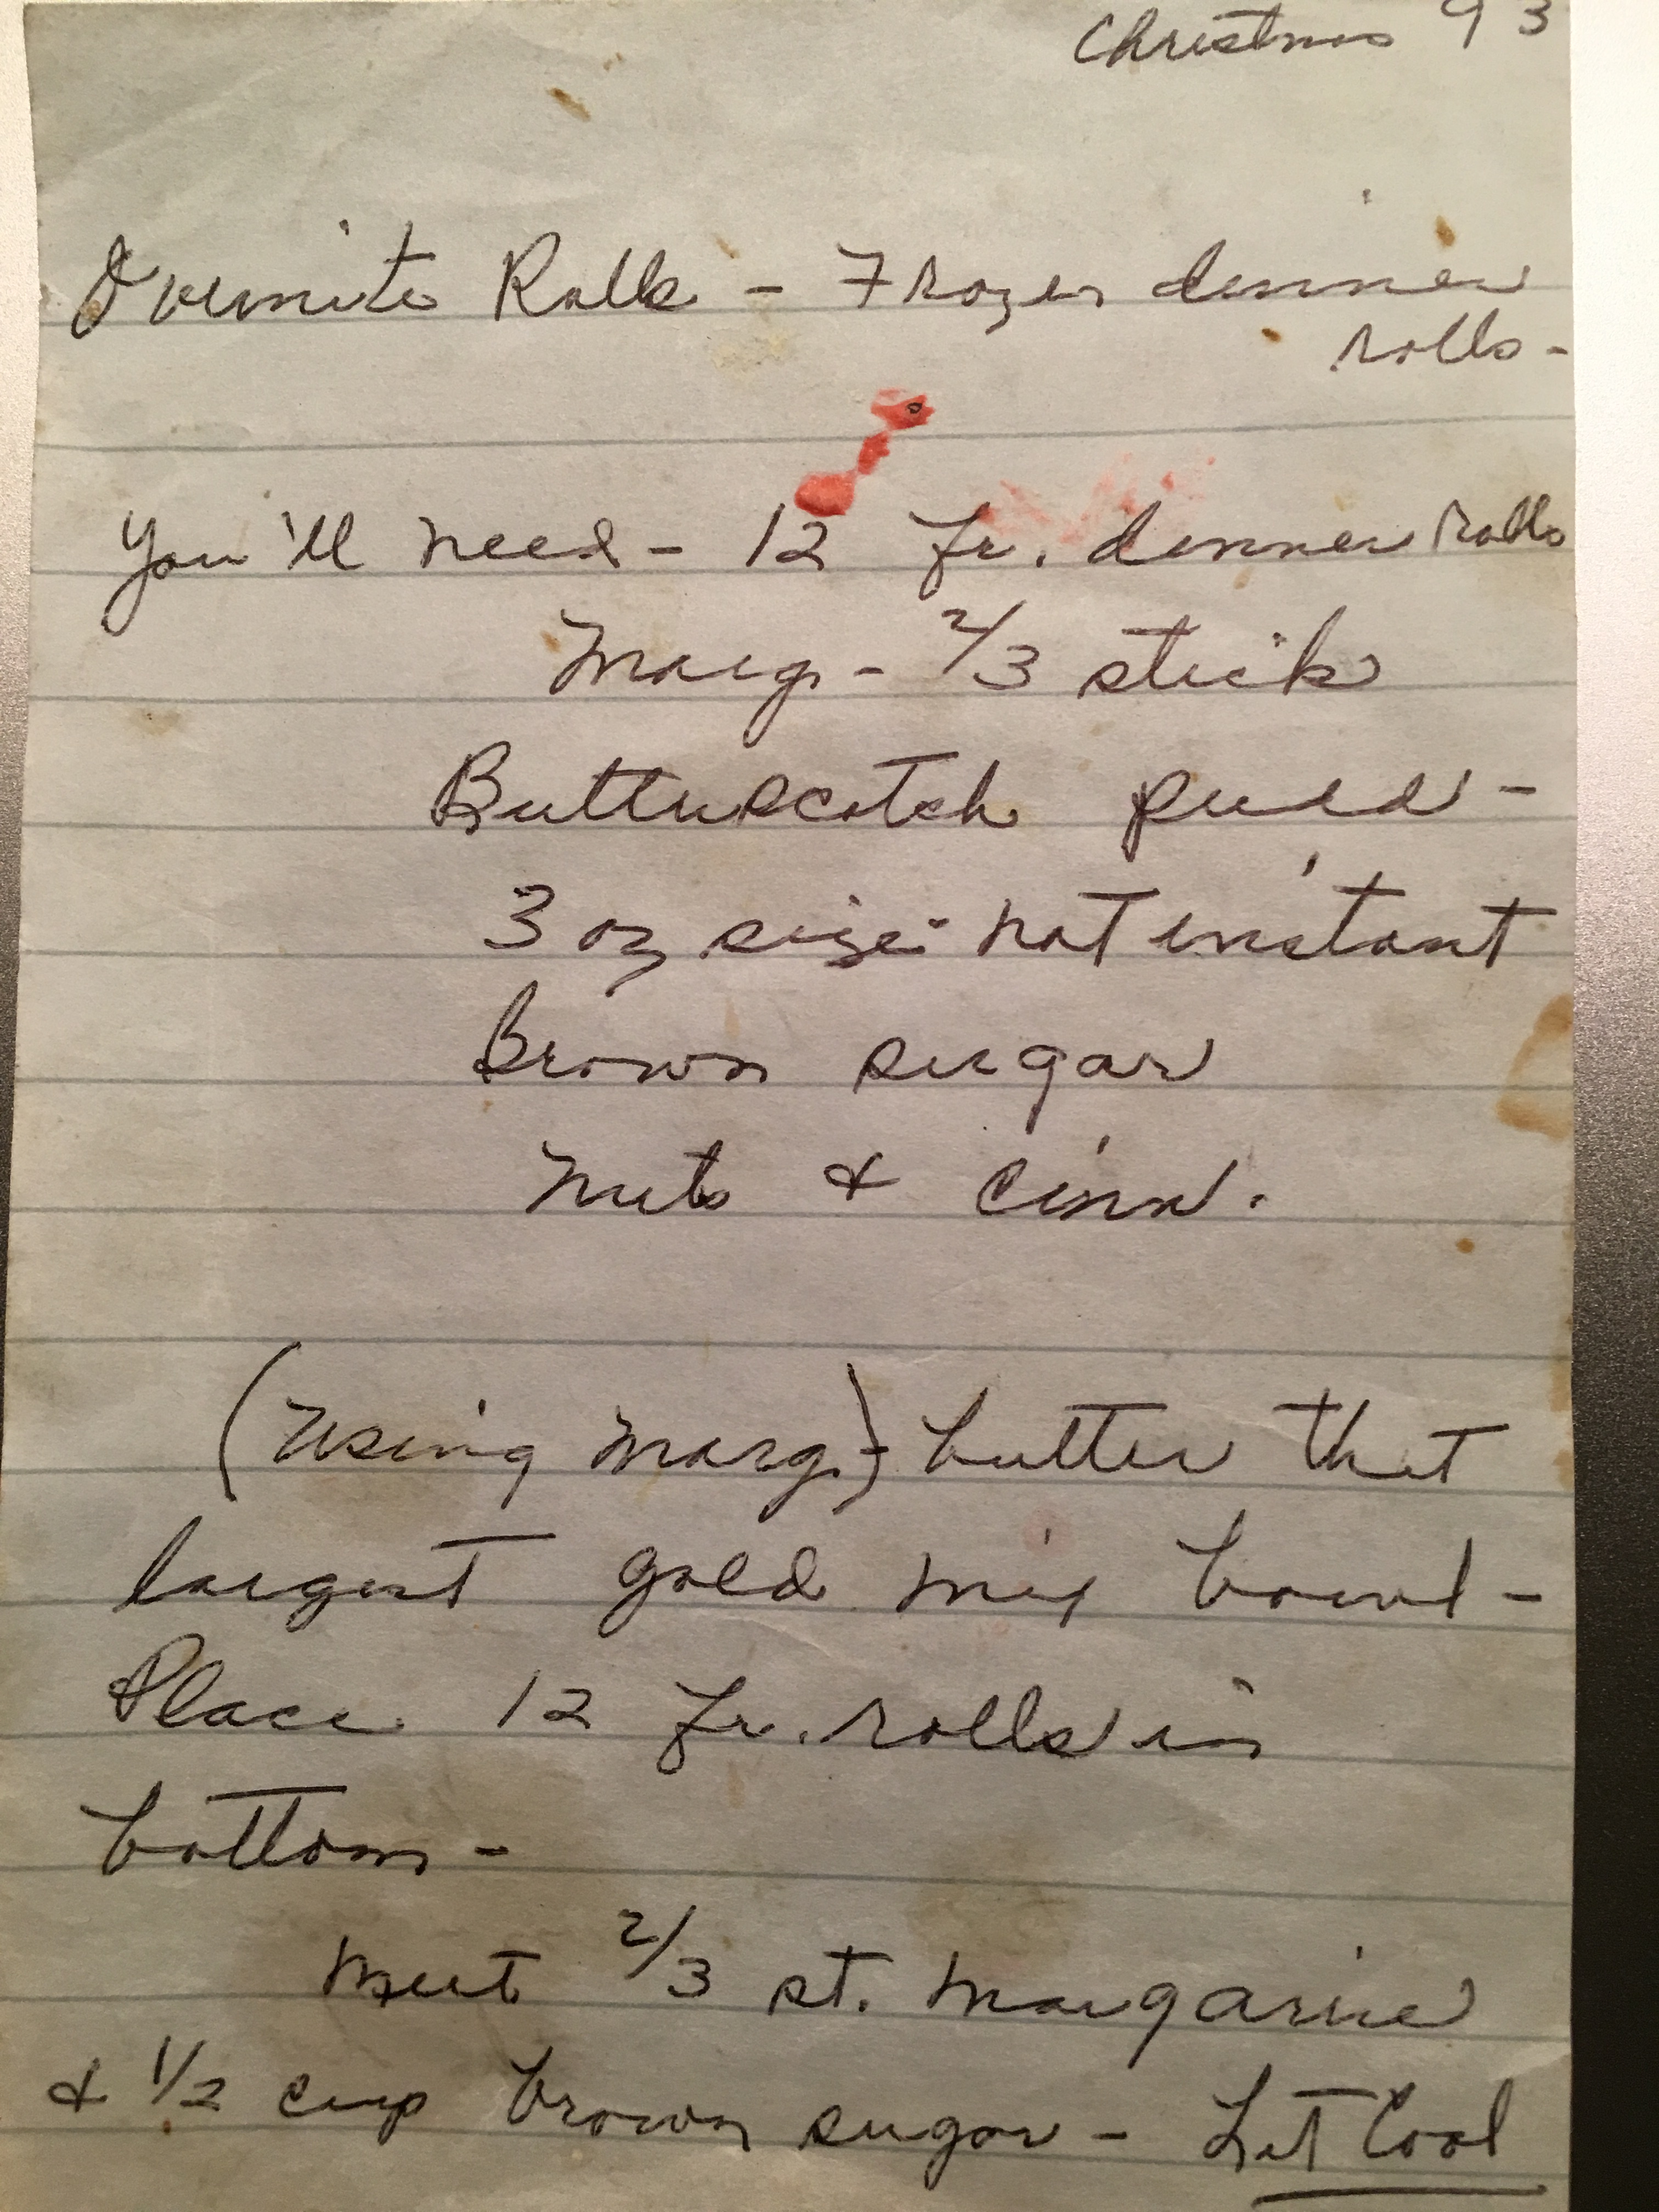 Christmas 93
Overnite Rolls - Frozen dinner
rolls -
You'll need - 12 Fr. dinner rolls
Marg - 2/3 stick
Butterscotch pudd -
3 oz size - not instant
Brown sugar
Nuts & Cinn.
(Using Marg.) - butter that
largest gold mix bowl -
Place 12 Fr. rolls in
bottom -
Melt 2/3 st. Margarine
& 1/2 cup brown sugar - Let Cool